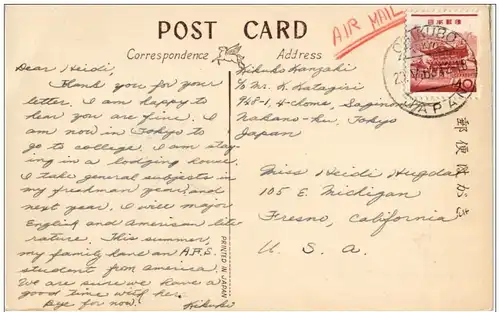 POST CARD
AIR MAIL
Correspondence
Address
Dear Heidi,
Thank you for your
letter. I am happy to
hear you are fine. I
am now in Tokyo to
go to college. I am stay-
ing in a lodging house.
I take general subjects in
my freshman year and
next year. I will major
English and American lite
rature. This summer,
my family have an A.F.S.
student from America.
We are sure we have a
good time with her.
Bye for now.
Kikuko
PRINTED IN JAPAN
Kikuko Kanzaki
c/o Mr. K. Katagiri
968-1, 4-chome, Saginomiya
Nakano-ku, Tokyo
Japan
Miss Heidi
105 E. Michigan
Fresno, California
U. S. A.
日本郵便
40
JAPAN
郵便はがき